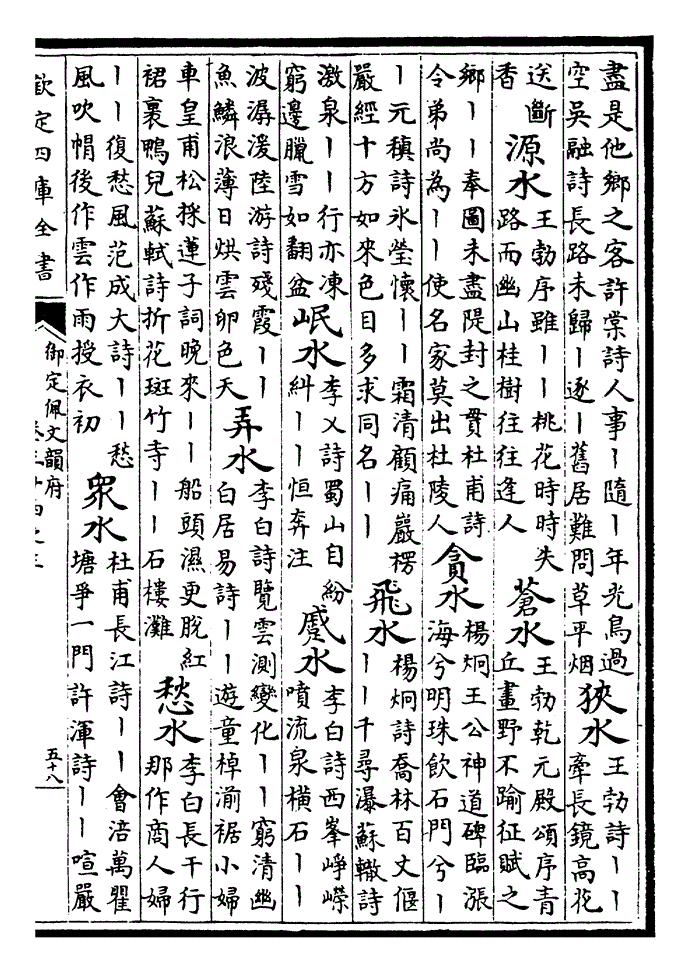 盡是他鄉之客許棠詩人事丨隨丨年光鳥過
空吳融詩長路未歸丨逐丨舊居難問草平烟
狹水
王勃詩丨丨
牽長鏡高花
送斷
香
源水
王勃序雖丨丨桃花時時失
路而幽山桂樹往往逢人
蒼水
王勃乾元殿頌序青
丘畫野不踰征賦之
鄉丨丨奉圖未盡隄封之貫杜甫詩
令弟尚為丨丨使名家莫出杜陵人
貪水
楊炯王公神道碑臨漲
海兮明珠飲石門兮丨
丨元稹詩氷瑩懷丨丨霜清顧痛巖楞
嚴經十方如來色目多求同名丨丨
飛水
楊炯詩喬林百丈偃
丨丨千尋瀑蘇轍詩
激泉丨丨行亦凍
窮邊臘雪如翻盆
岷水
李乂詩蜀山自紛
糾丨丨恒奔注
蹙水
李白詩西峯崢嶸
噴流泉橫石丨丨
波潺湲陸游詩殘霞丨丨
魚鱗浪薄日烘雲卵色天
弄水
李白詩覽雲測變化丨丨窮清幽
白居易詩丨丨遊童棹湔裾小婦
車皇甫松採蓮子詞晚來丨丨船頭濕更脫紅
裙裹鴨兒蘇軾詩折花斑竹寺丨丨石樓灘
愁水
李白長干行
那作商人婦
丨丨復愁風范成大詩丨丨愁
風吹帽後作雲作雨授衣初
衆水
杜甫長江詩丨丨會涪萬瞿
塘爭一門許渾詩丨丨喧嚴
欽定四庫全書
御定佩文韻府
卷三十四之三
五十八